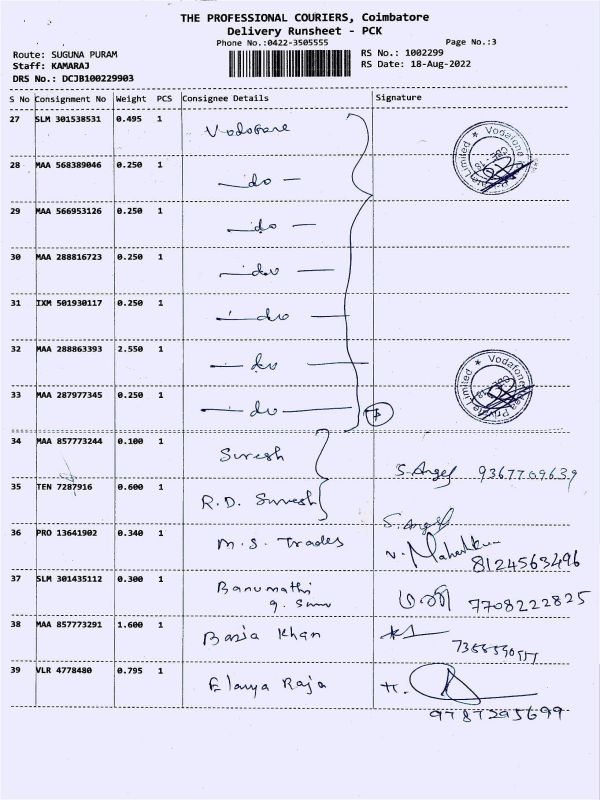 THE PROFESSIONAL COURIERS, Coimbatore
Delivery Runsheet - PCK
Phone No.:0422-3505555
Page No.:3
Route: SUGUNA PURAM
Staff: KAMARAJ
DRS No.: DCJB100229903
RS No.: 1002299
RS Date: 18-Aug-2022
S No Consignment No Weight PCS Consignee Details Signature
27 SLM 301538531 0.495 1 Vodofone
28 MAA 568389046 0.250 1 — do —
29 MAA 566953126 0.250 1 — do —
30 MAA 288816723 0.250 1 — do —
31 IXM 501930117 0.250 1 — do —
32 MAA 288863393 2.550 1 — do —
33 MAA 287977345 0.250 1 — do — 7
34 MAA 857773244 0.100 1 Suresh S. Angel 9367709639
35 TEN 7287916 0.600 1 R.D. Suresh S. Angel
36 PRO 13641902 0.340 1 M.S. Trades V. Mahesh 8124563496
37 SLM 301435112 0.300 1 Banumathi 7708222825
38 MAA 857773291 1.600 1 Basia Khan
39 VLR 4778480 0.795 1 Elanya Raja H.
9787295699